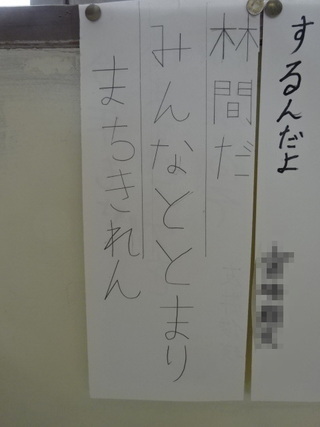 するんだよ
林間だ
みんなととまり
まちきれん